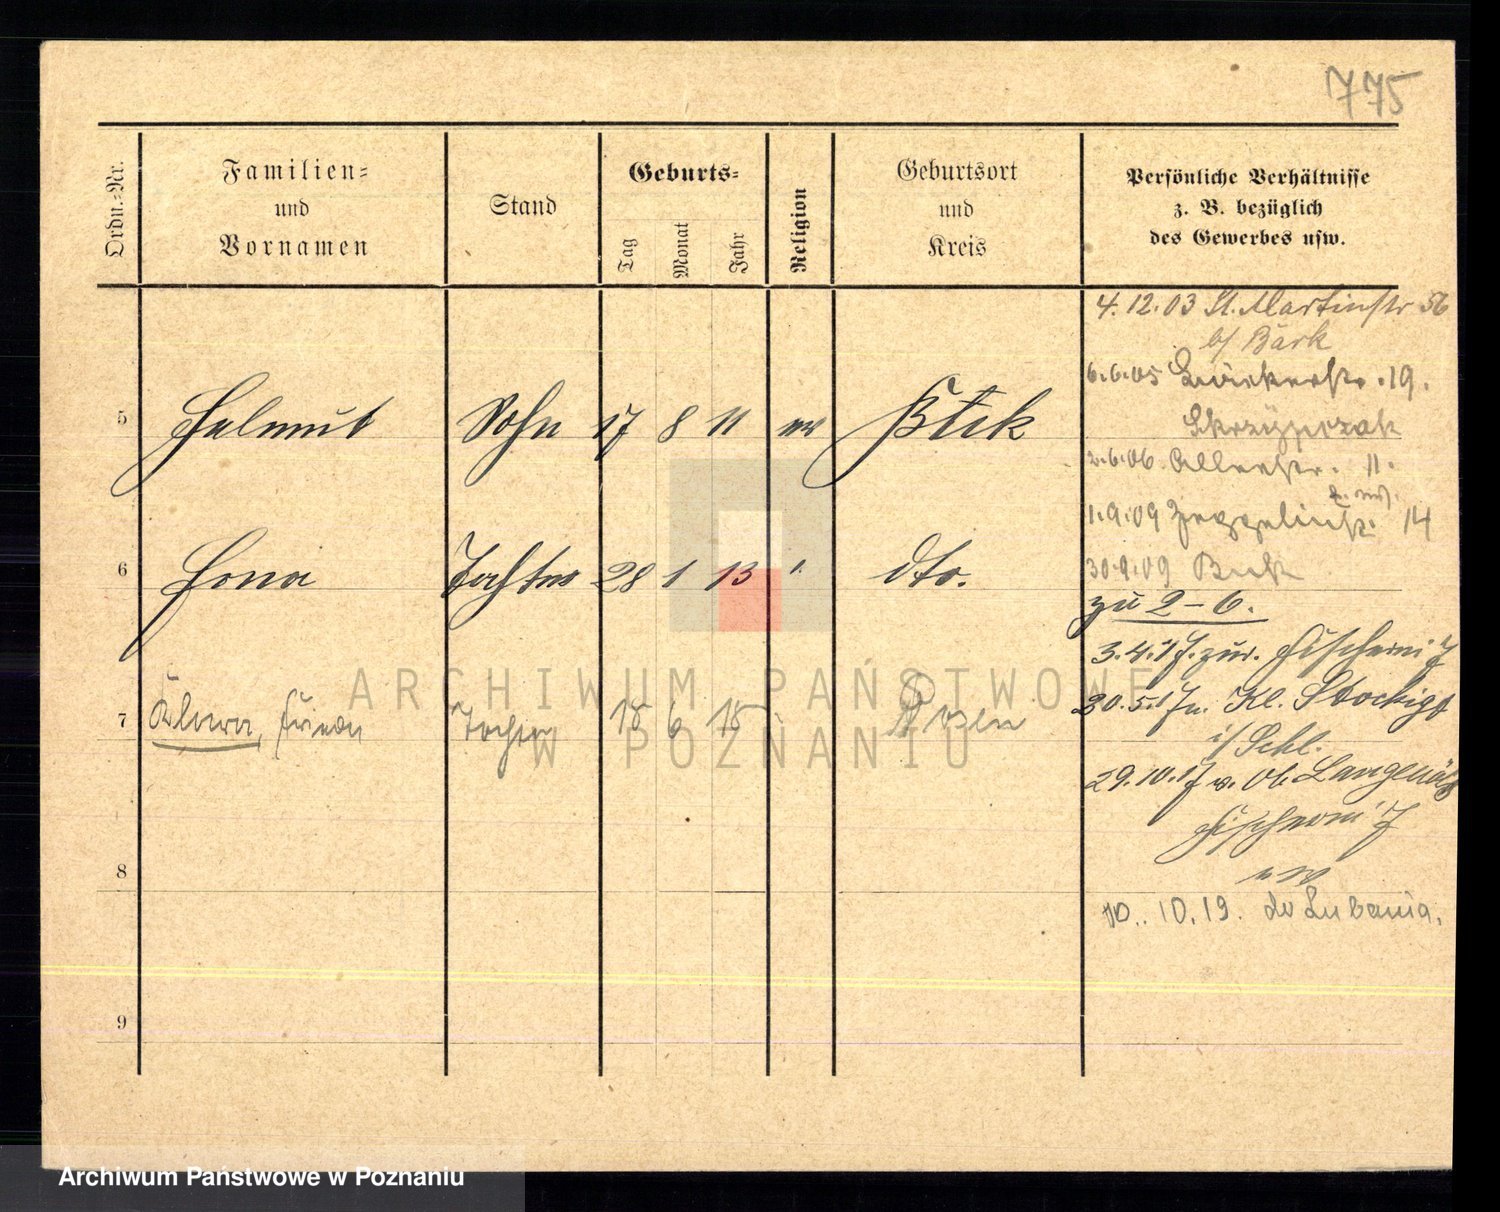 775
Ordn.-Nr.
Familien-
und
Vornamen
Stand
Geburts-
Tag
Monat
Jahr
Religion
Geburtsort
und
Kreis
Persönliche Verhältnisse
z. B. bezüglich
des Gewerbes usw.
4.12.03 St. Martinstr 56
b/ Bärk
6.6.05 19.
Skrzypczak
2.6.06. 11.
1.9.09 Zeppelinstr. 14
30.9.09 Buk
zu 2-6.
3.4.17. zur. Fischerei 7
30.5.17 n. Kl. Stöckigt
i/ Schl.
29.10.17 v. Ob. Langenöls
Fischerei 7
10.10.19. do Lubania.
5 Helmut Sohn 17 8 11 ev Buk
6 Tochter 28 1 13 " dto.
7 Klara, Frieda Tochter 18 6 18 Posen
8
9
ARCHIWUM PAŃSTWOWE
W POZNANIU
Archiwum Państwowe w Poznaniu